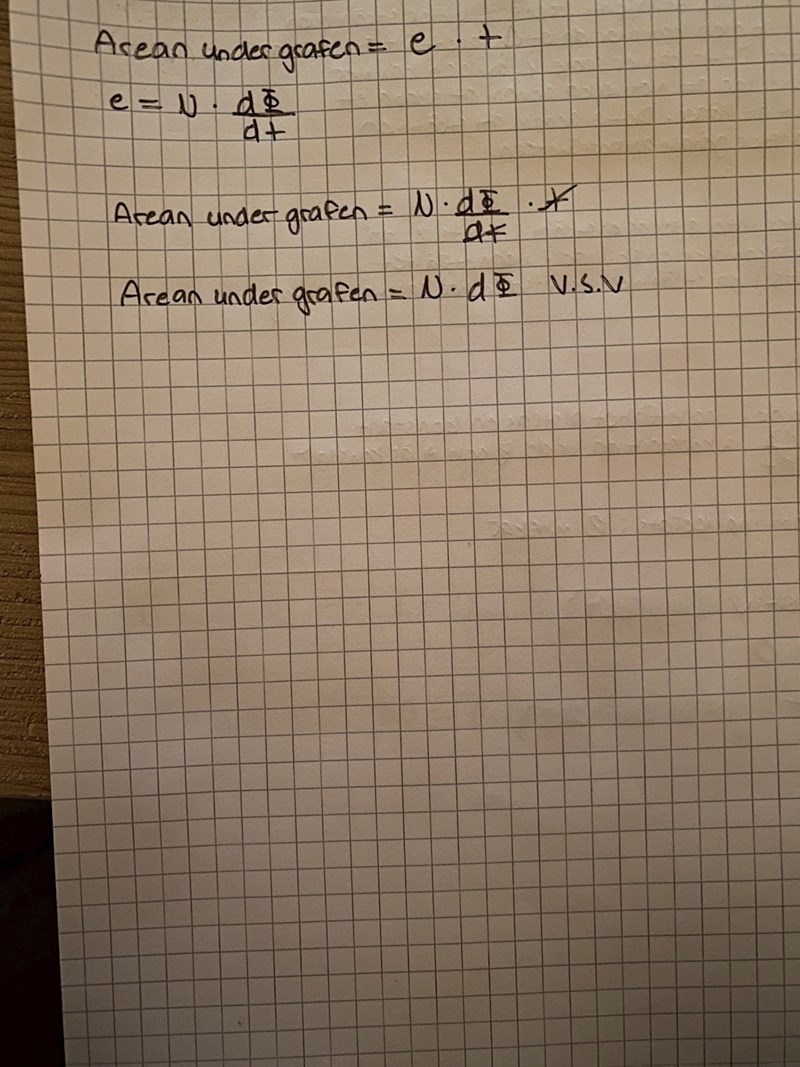 Arean under grafen = e · t
e = N · dΦ/dt
Arean under grafen = N · dΦ/dt · t
Arean under grafen = N · dΦ V.S.V